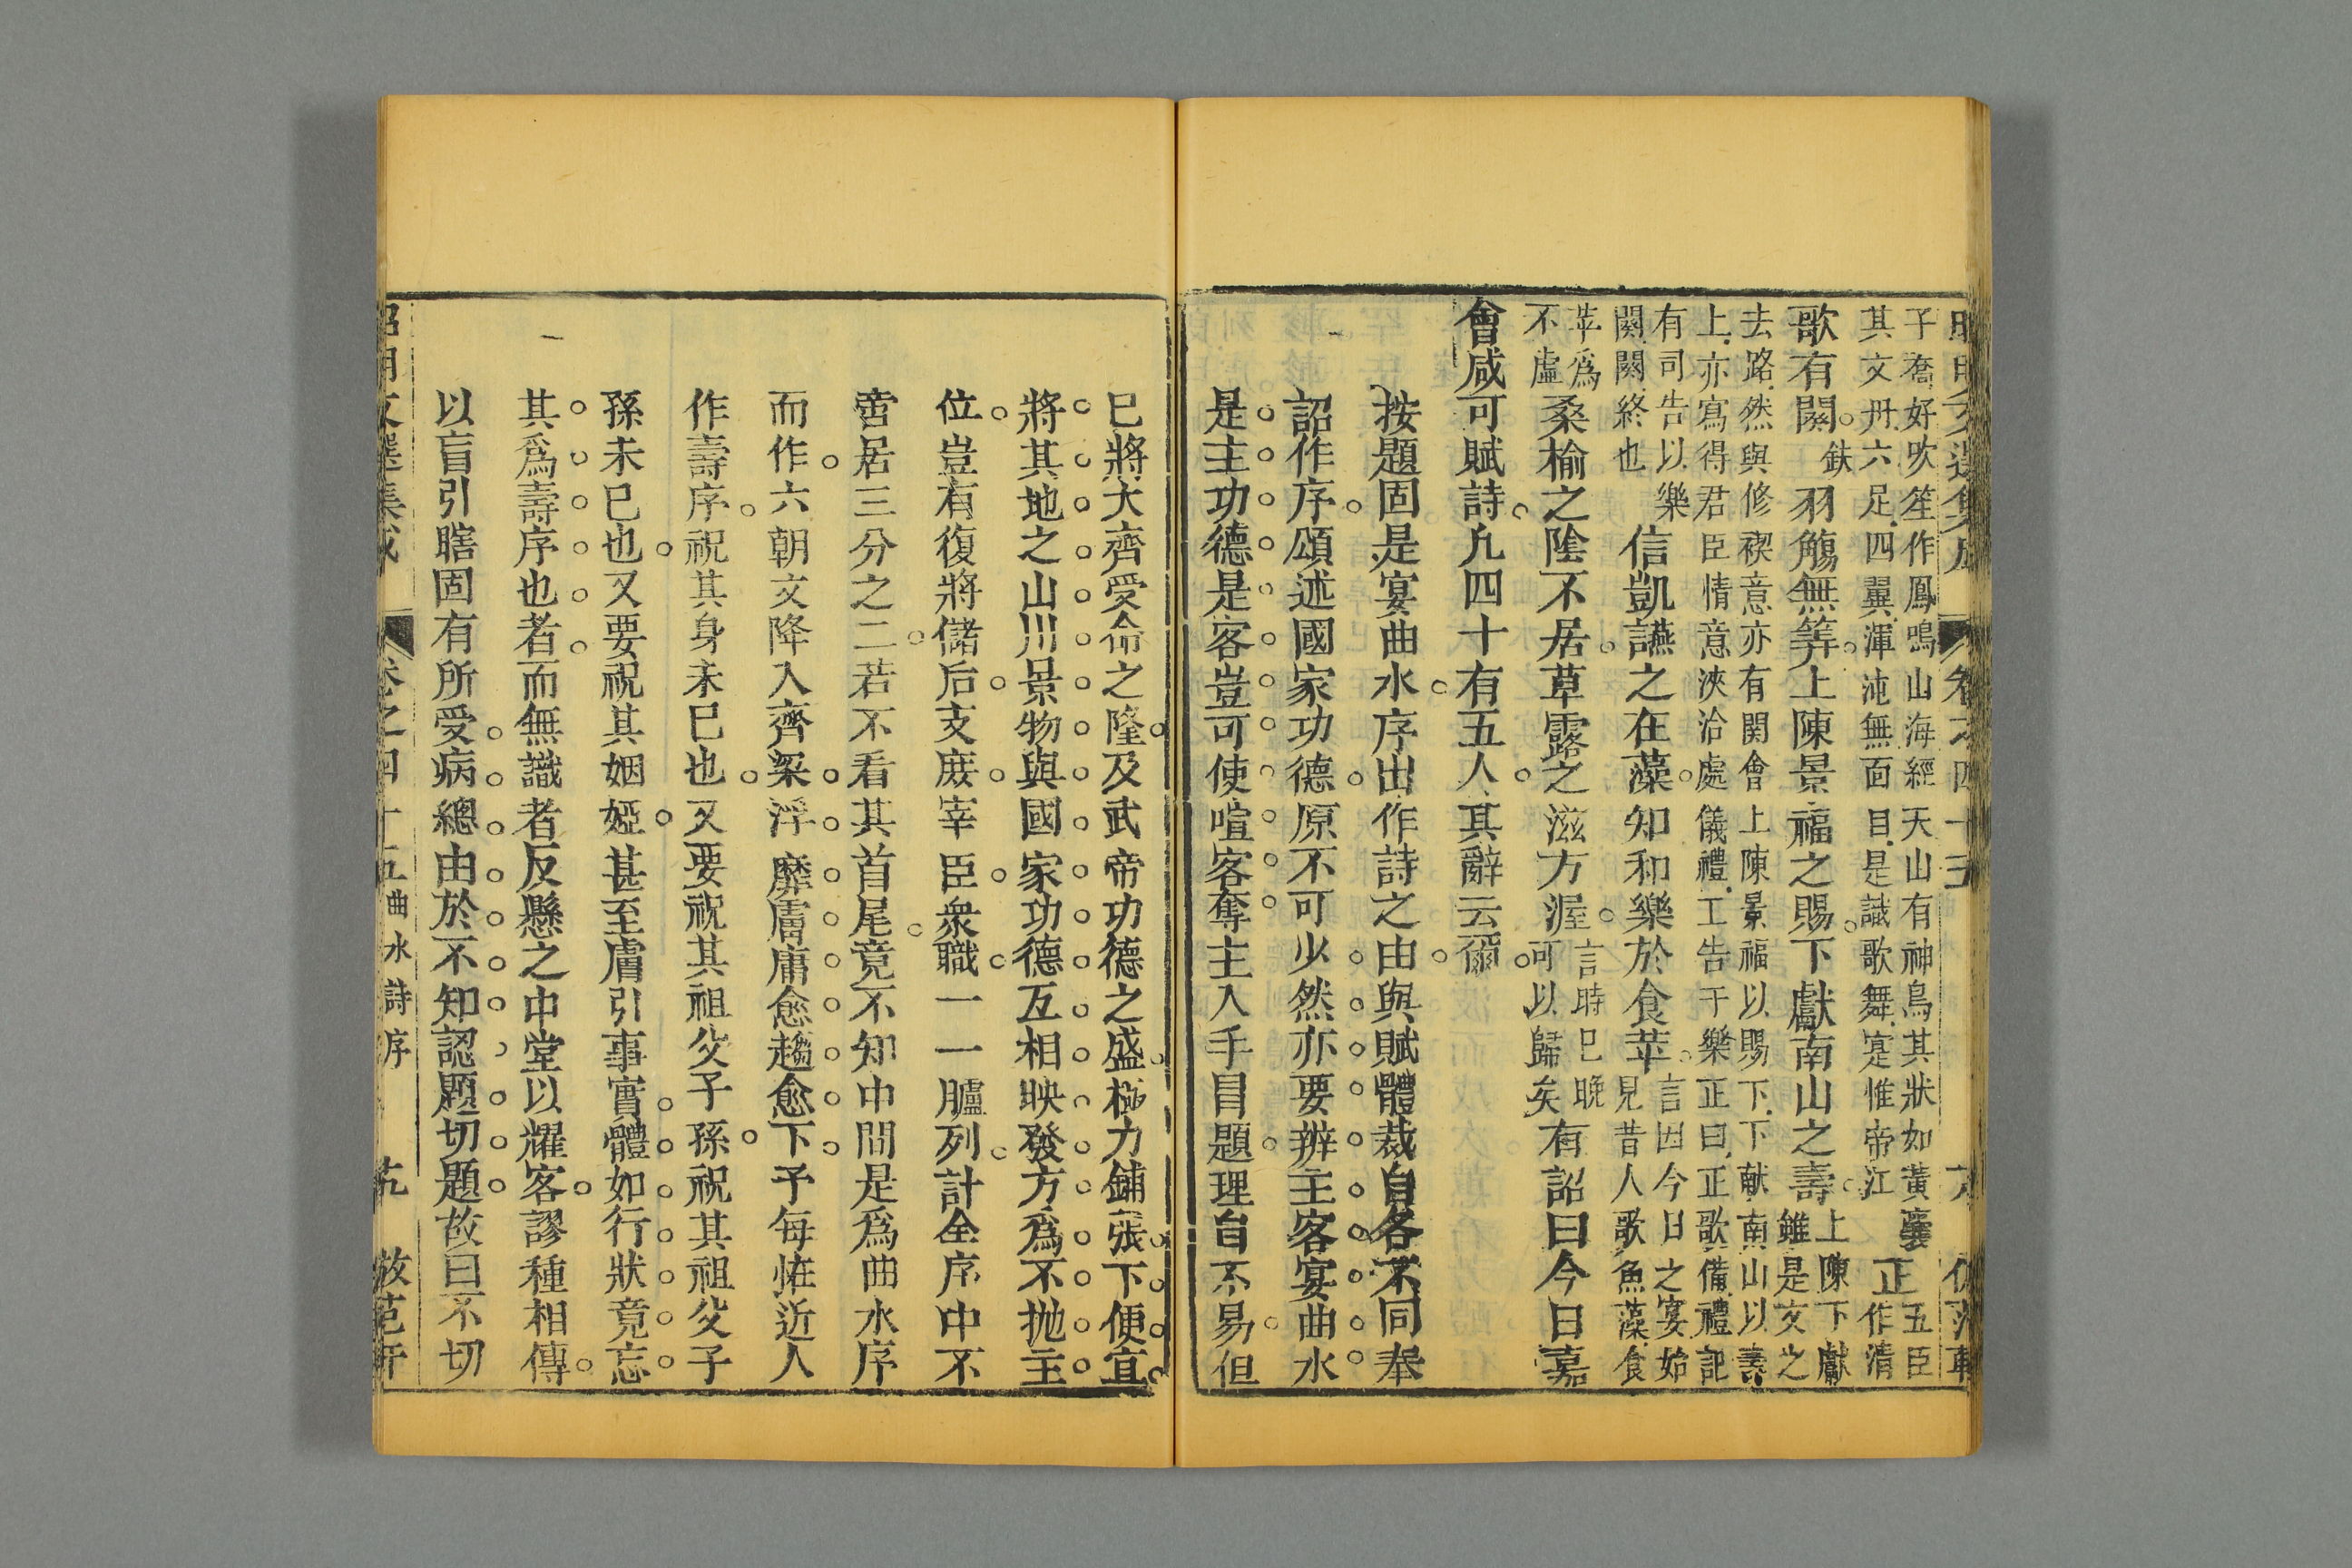 子喬好吹笙作鳳鳴山海經天山有神鳥其狀如黃囊五臣
其文丹六足四翼渾沌無面目是識歌舞寔惟帝江正作清
歌有闋缺羽觴無筭上陳景福之賜下獻南山之壽上陳下獻雖是文之
去路然與修禊意亦有関會上陳景福以賜下下献南山以壽
上亦寫得君臣情意浹洽處儀禮工告于樂正曰正歌備禮記
有司告以樂闋闋終也信凱讌之在藻知和樂於食苹言因今日之宴始見昔人歌魚藻食
苹爲不虛桑榆之陰不居草露之滋方渥言時巳晚可以歸矣有詔曰今日嘉
會咸可賦詩凡四十有五人其辭云爾
按題固是宴曲水序出作詩之由與賦體裁自各不同奉
詔作序頌述國家功德原不可少然亦要辨主客宴曲水
是主功德是客豈可使喧客奪主入手目題理自不易但
巳將大齊受命之隆及武帝功德之盛極力鋪張下便宜
將其地之山川景物與國家功德互相映發方爲不抛主
位豈有復將儲后支庶宰臣衆職一一臚列計全序中不
啻居三分之二若不看其首尾竟不知中間是爲曲水序
而作六朝文降入齊梁浮靡膚庸愈趨愈下予每恠近人
作壽序祝其身未巳也又要祝其祖父子孫祝其祖父子
孫未巳也又要祝其姻婭甚至膚引事實體如行狀竟忘
其爲壽序也者而無識者反懸之中堂以耀客謬種相傳
以盲引瞎固有所受病總由於不知認題切題故曰不切
昭明文選集成 卷之四十五 曲水詩序